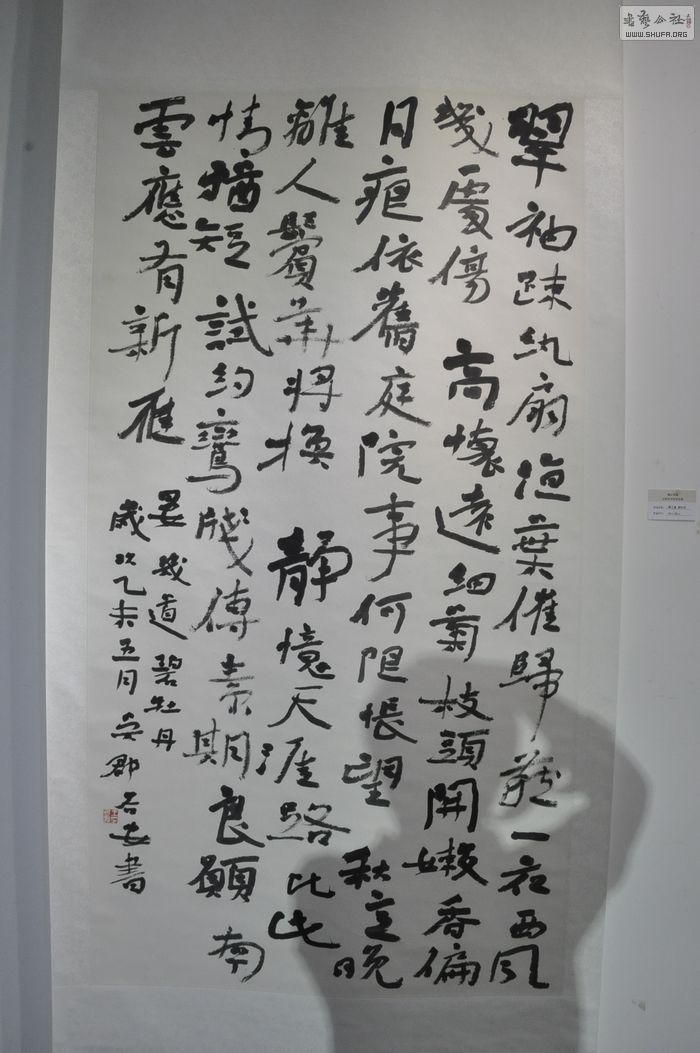 翠袖踈紈扇涼葉催歸鷰一夜西風
幾處傷高懷遠細菊枝頭開嫩香偏
月痕依舊庭院事何限悵望秋意晚
離人鬢華將換靜憶天涯路比此
情猶短試約鸞牋傳素期良願南
雲應有新雁
晏幾道碧牡丹
歲次乙未五月吳郡書
書藝公社
WWW.SHUFA.ORG